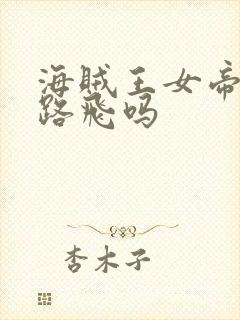 海贼王女帝
路飞吗
杏木子